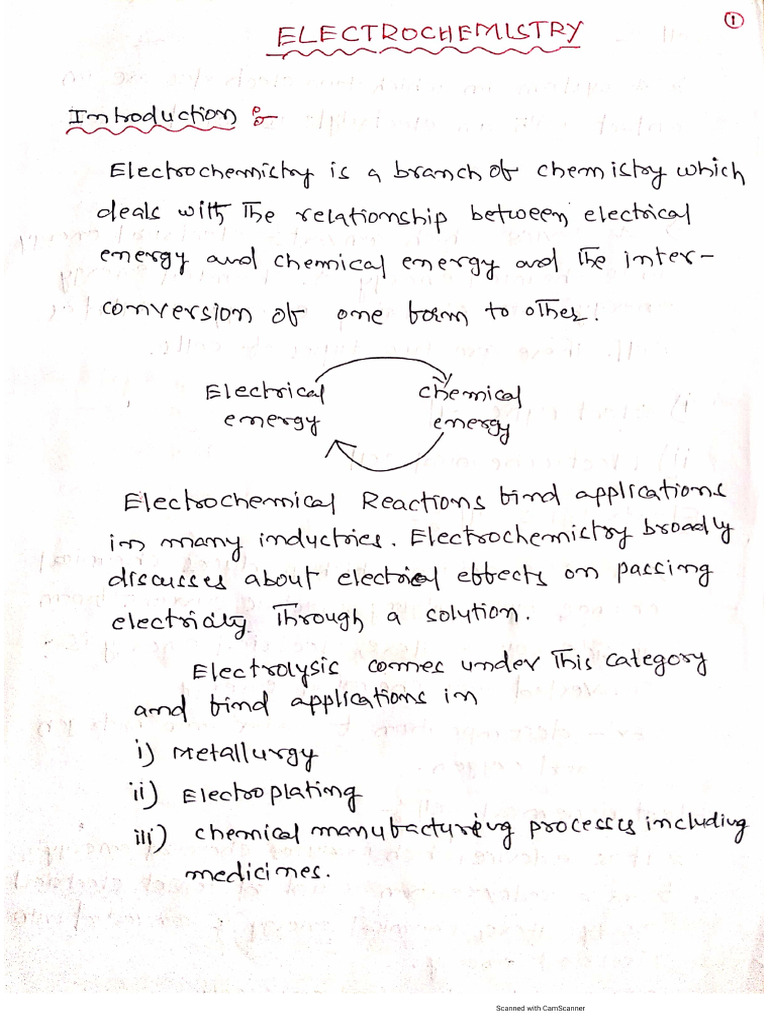 ELECTROCHEMISTRY
1
Introduction :-
Electrochemistry is a branch of chemistry which
deals with the relationship between electrical
energy and chemical energy and the inter-
conversion of one form to other.
Electrical chemical
energy energy
Electrochemical Reactions find applications
in many inductries. Electrochemistry broadly
discusses about electrical effects on passing
electricity through a solution.
Electrolysis comes under this category
and find applications in
i) Metallurgy
ii) Electroplating
iii) chemical manufacturing processes including
medicines.
Scanned with CamScanner